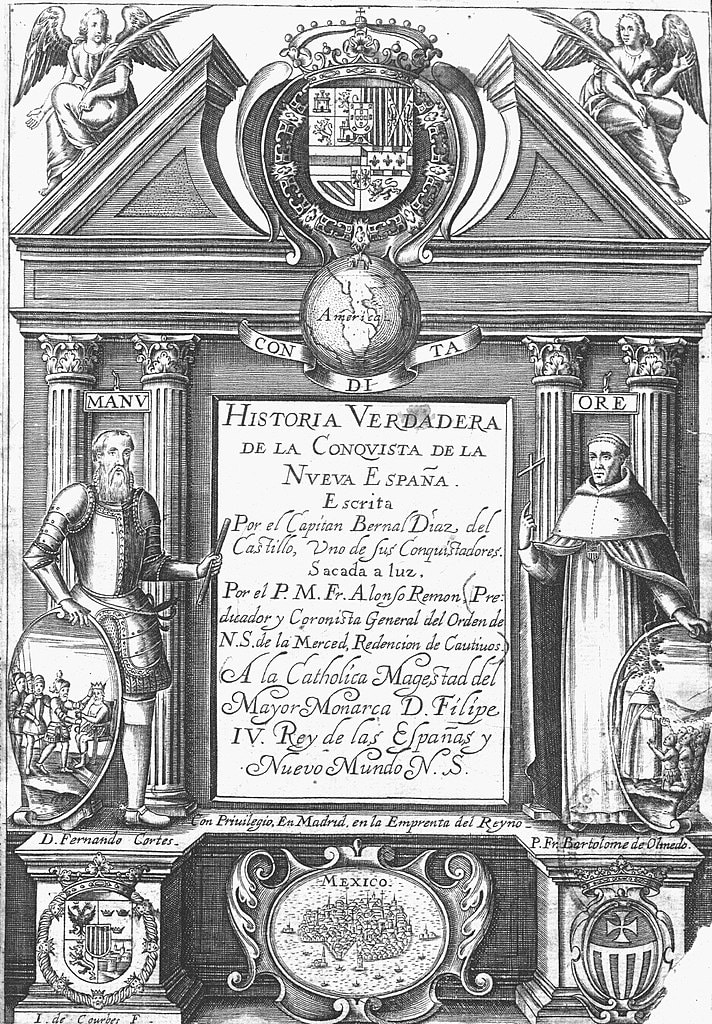 America
CON DI TA
MANV
ORE
HISTORIA VERDADERA
DE LA CONQVISTA DE LA
NVEVA ESPAÑA.
Escrita
Por el Capitan Bernal Diaz, del
Castillo, Vno de sus Conquistadores.
Sacada a luz,
Por el P. M. Fr. Alonso Remon, Pre-
dicador y Coronista General del Orden de
N. S. de la Merced, Redencion de Cautivos.
A la Catholica Magestad del
Mayor Monarca D. Filipe
IV. Rey de las Españas y
Nuevo Mundo N. S.
Con Privilegio, En Madrid, en la Emprenta del Reyno
D. Fernando Cortes.
P. Fr. Bartolome de Olmedo.
MEXICO.
I. de Courbes F.